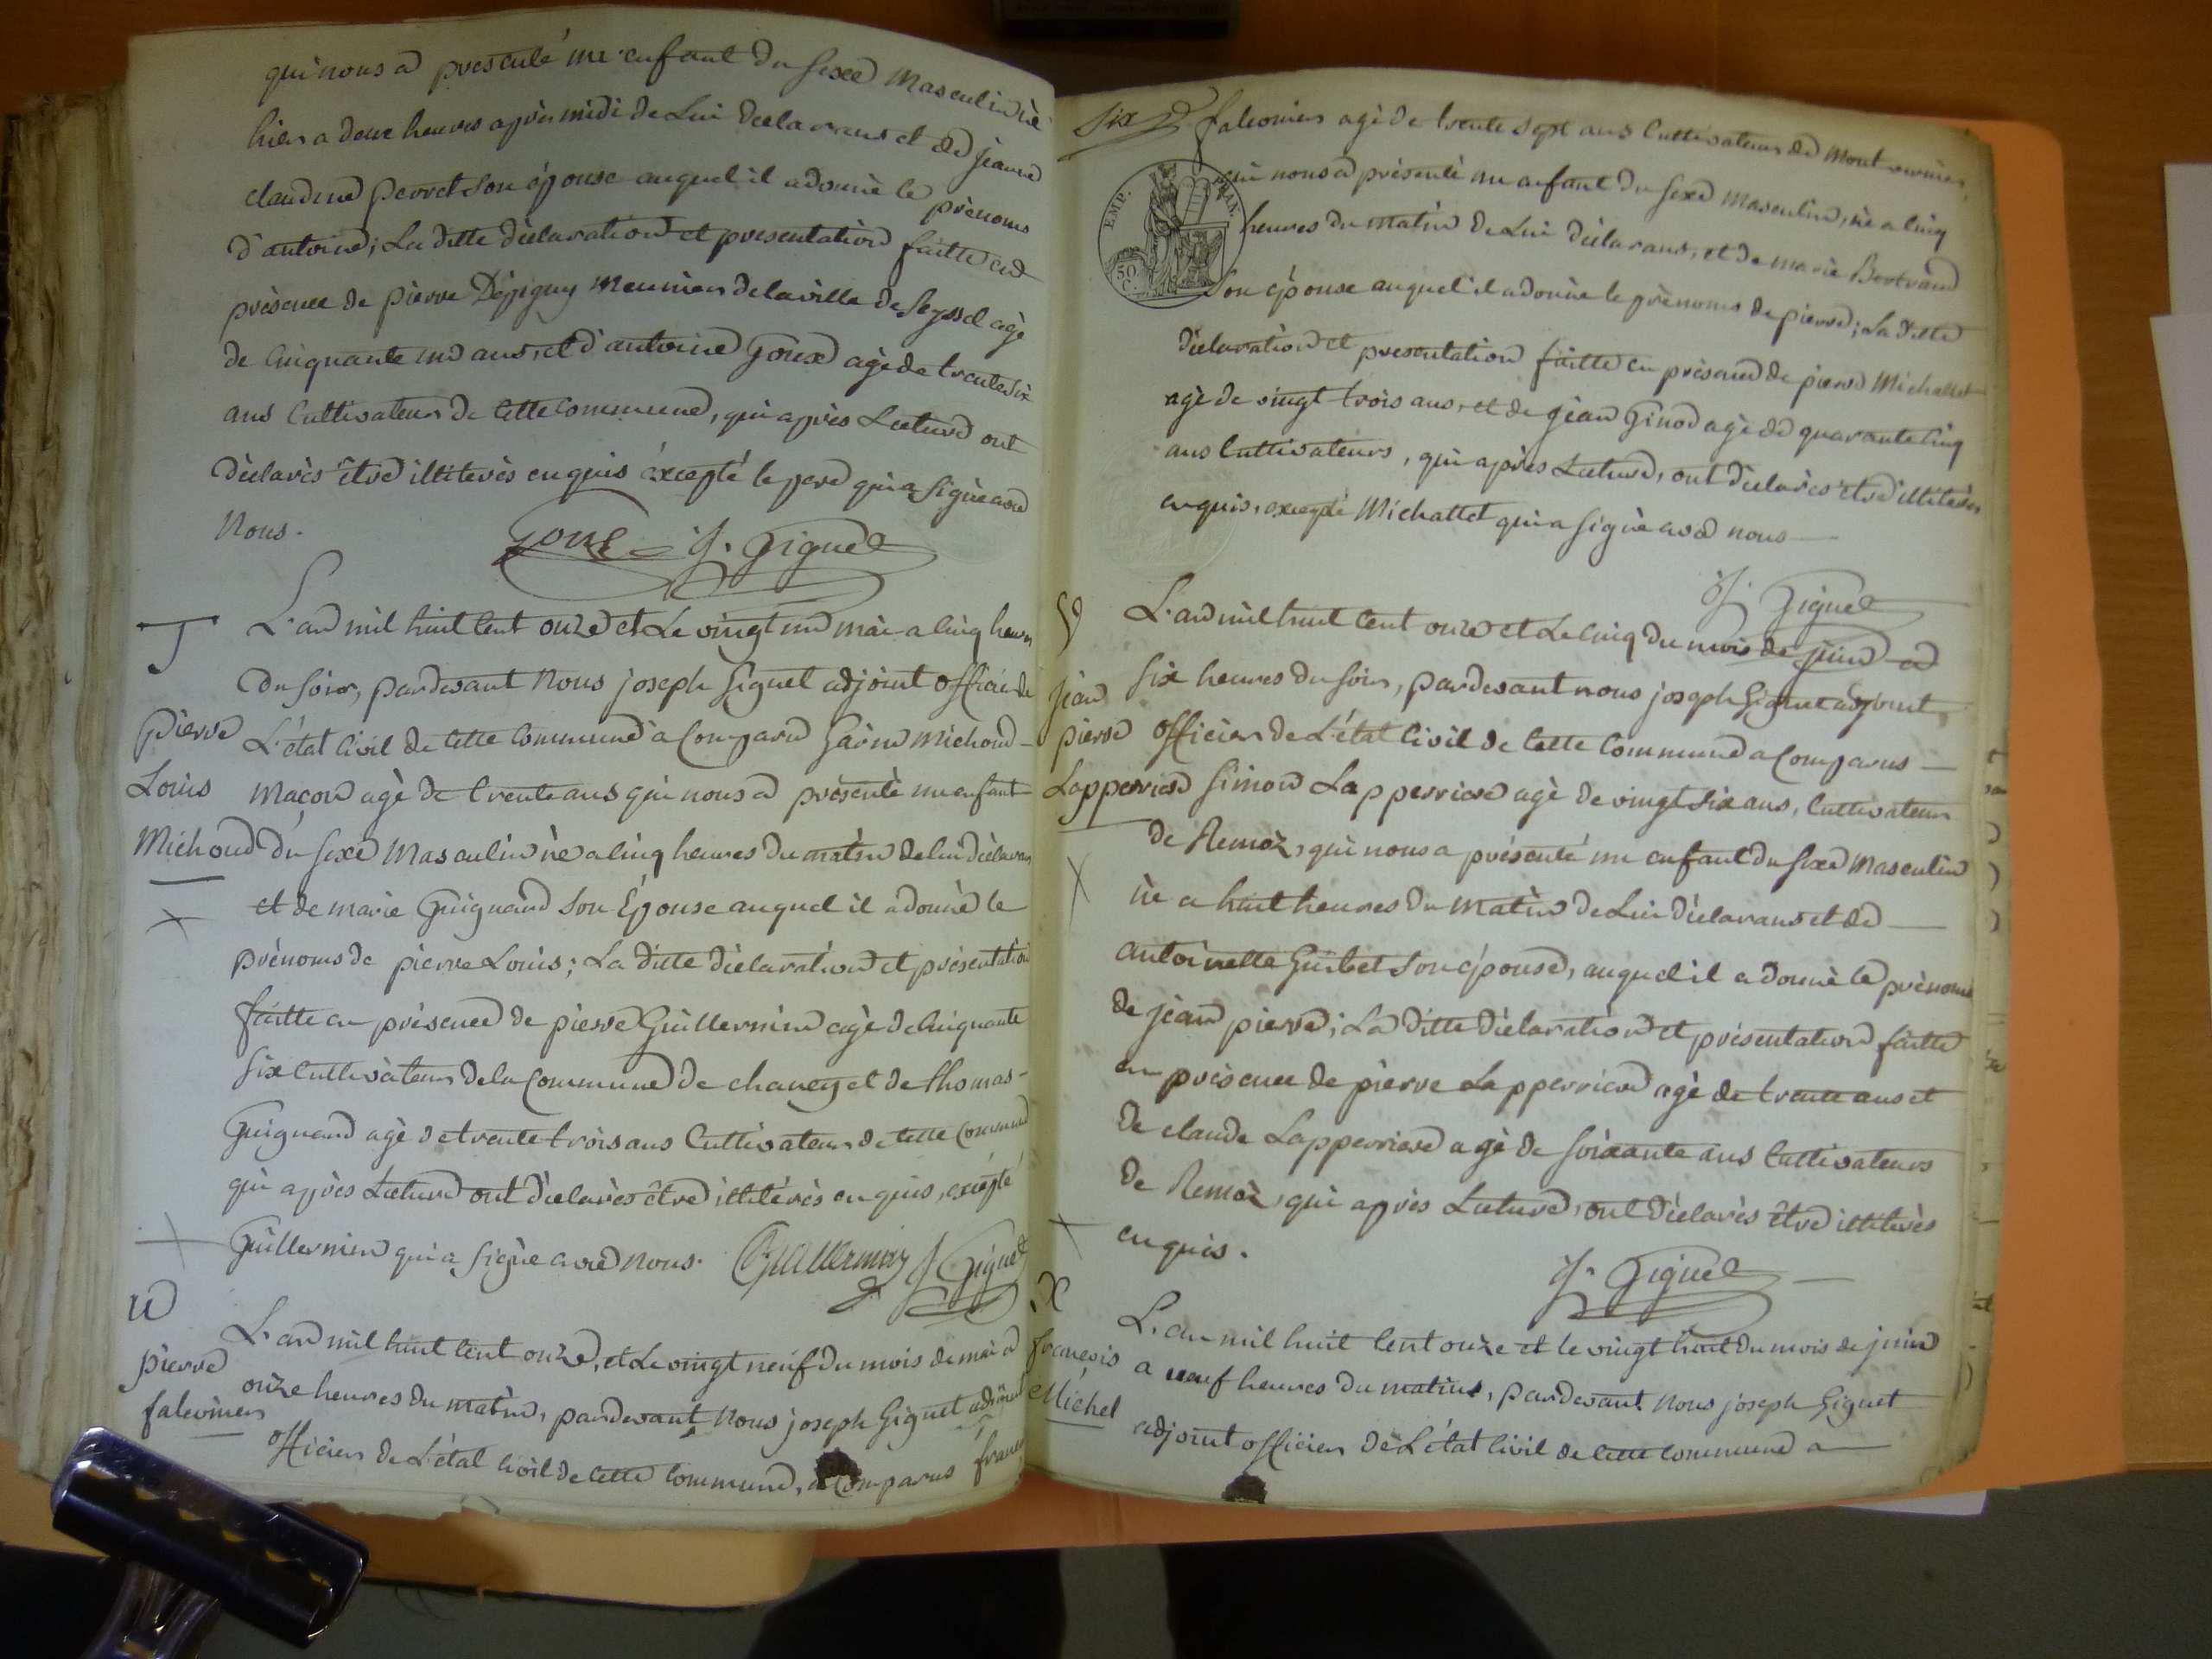 qui nous a presenté un enfant du sexe Masculin né
hier a deux heures après midi de Lui declarans et de jeanne
claudine perret son épouse auquel il a donnè le prènoms
d'antoine; La ditte dèclaration et presentation faitte en
prèsence de pierre Dépigny Meunier de la ville de Seyssel agè
de Cinquante un ans, et d'antoine Goux agè de trente six
ans Cultivateur de Cette Commune, qui après Lecture ont
dèclarès être illiterès enquis éxcepté le pere qui a signè avec
Nous.
Goux J. Giguet
T
L'an mil huit Cent onze et Le vingt un mai a Cinq heures
du soir, pardevant Nous joseph Giguet adjoint officier de
pierre L'état Civil de Cette Commune à Comparu Michoud
Louis Macon agè de trente ans qui nous a présentè un enfant
Michoud du sexe Masculin nè a Cinq heures du matin de lui dèclarans
et de marie Guignard son Épouse auquel il a donnè le
prènoms de pierre Louis; La ditte dèclaration et prèsentation
faitte en présence de pierre Guillermin agè de Cinquante
six Cultivateur de la Commune de chaney et de thomas
Guignard agè de trente trois ans Cultivateur de Cette Commune
qui après Lecture ont dèclarès être illitérès enquis, excépté
Guillermin qui a signè avec Nous. Guillermin J Giguet
U
L'an mil huit Cent onze, et Le vingt neuf du mois de mai a
pierre onze heures du matin, pardevant Nous joseph Giguet adjoint
falconier officier de L'état Civil de Cette Commune, a Comparus
Six falconier agè de trente sept ans Cultivateur de
qui nous a prèsentè un enfant du sexe Masculin, nè a Cinq
heures du matin de Lui dèclarans, et de marie Bertrand
son épouse auquel il a donnè le prènoms de pierre; La ditte
dèclaration et presentation faitte en prèsence de pierre Michallet
agè de vingt trois ans, et de jean Ginod agè de quarante Cinq
ans Cultivateurs, qui après Lecture, ont dèclarès etre illiterès
enquis, excepté Michallet qui a signè avec nous
J. Giguet
EMP. FRAN.
50 C.
V
L'an mil huit Cent onze et Le Cinq du mois de juin a
jean six heures du soir, pardevant nous joseph Giguet adjoint
pierre officier de L'état Civil de Cette Commune a Comparus
Lapperriere Simon Lapperriere agè de vingt six ans, Cultivateur
de Remoz, qui nous a présenté un enfant du sexe Masculin
nè a huit heures du Matin de Lui dèclarans et de
antoinette Guibet son épouse, auquel il a donnè le prènoms
de jean pierre; La ditte dèclaration et présentation faitte
en prèsence de pierre Lapperriere agè de trente ans et
de claude Lapperriere agè de soixante ans Cultivateurs
de Remoz, qui après Lecture, ont dèclarès être illiterès
enquis.
J. Giguet
X
L'an mil huit Cent onze et le vingt huit du mois de juin
francois a neuf heures du matin, pardevant Nous joseph Giguet
Michel adjoint officier de L'état Civil de Cette Commune a